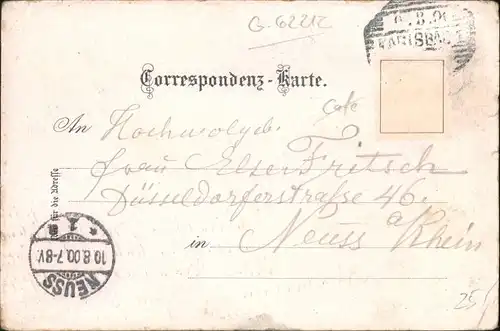 G. 62212
.8.00
KARLSBAD
Correspondenz-Karte.
An Hochwolgeb.
Frau Elser Fritsch
Düsseldorferstraße 46.
in Neuss a/Rhein
für die Adresse
* 1 *
10.8.00.7-8V.
NEUSS
25